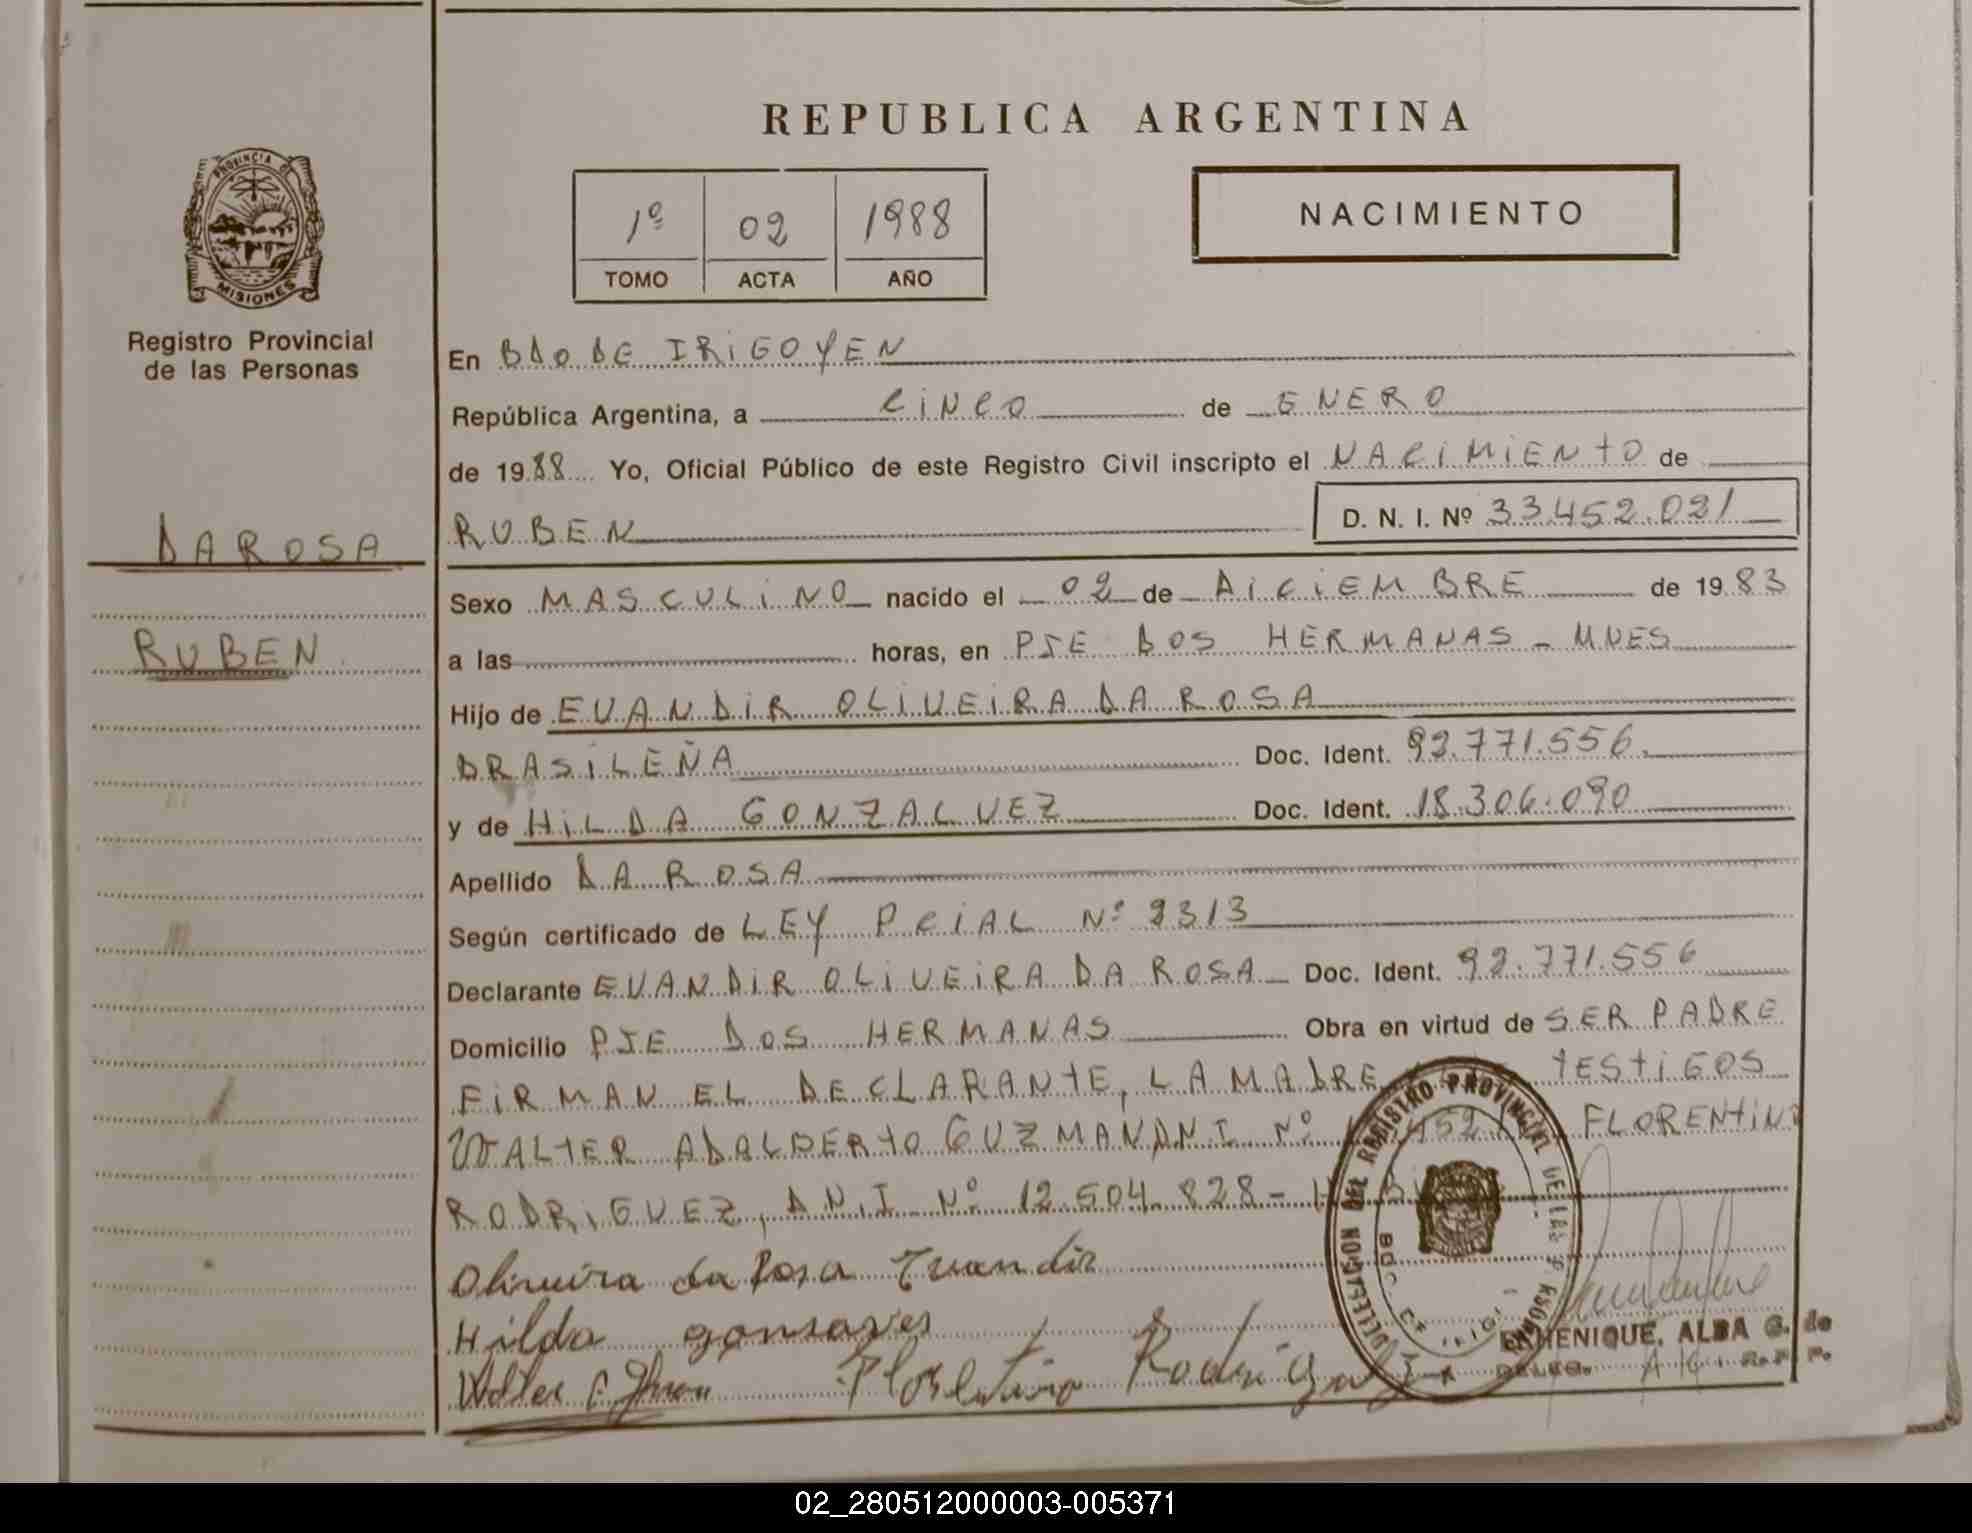 REPUBLICA ARGENTINA
PROVINCIA DE
MISIONES
Registro Provincial
de las Personas
DA ROSA
RUBEN
1º 02 1988
TOMO ACTA AÑO
NACIMIENTO
En BDO DE IRIGOYEN
República Argentina, a CINCO de ENERO
de 1988 Yo, Oficial Público de este Registro Civil inscripto el NACIMIENTO de
RUBEN D. N. I. Nº 33.452.021
Sexo MASCULINO nacido el 02 de DICIEMBRE de 1983
a las horas, en PJE DOS HERMANAS - MNES
Hijo de EVANDIR OLIVEIRA DA ROSA
BRASILEÑA Doc. Ident. 92.771.556
y de HILDA GONZALVEZ Doc. Ident. 18.306.090
Apellido DA ROSA
Según certificado de LEY PCIAL Nº 2313
Declarante EVANDIR OLIVEIRA DA ROSA Doc. Ident. 92.771.556
Domicilio PJE DOS HERMANAS Obra en virtud de SER PADRE
FIRMAN EL DECLARANTE, LA MADRE TESTIGOS
WALTER ADALBERTO GUZMAN DNI Nº FLORENTINO
RODRIGUEZ, DNI Nº 12.504.828 -
Oliveira da Rosa Evandir
Hilda gonsaves
Florentino Rodriguez
DELEGACION DEL REGISTRO PROVINCIAL DE LAS PERSONAS
ALBA G. de
02_280512000003-005371